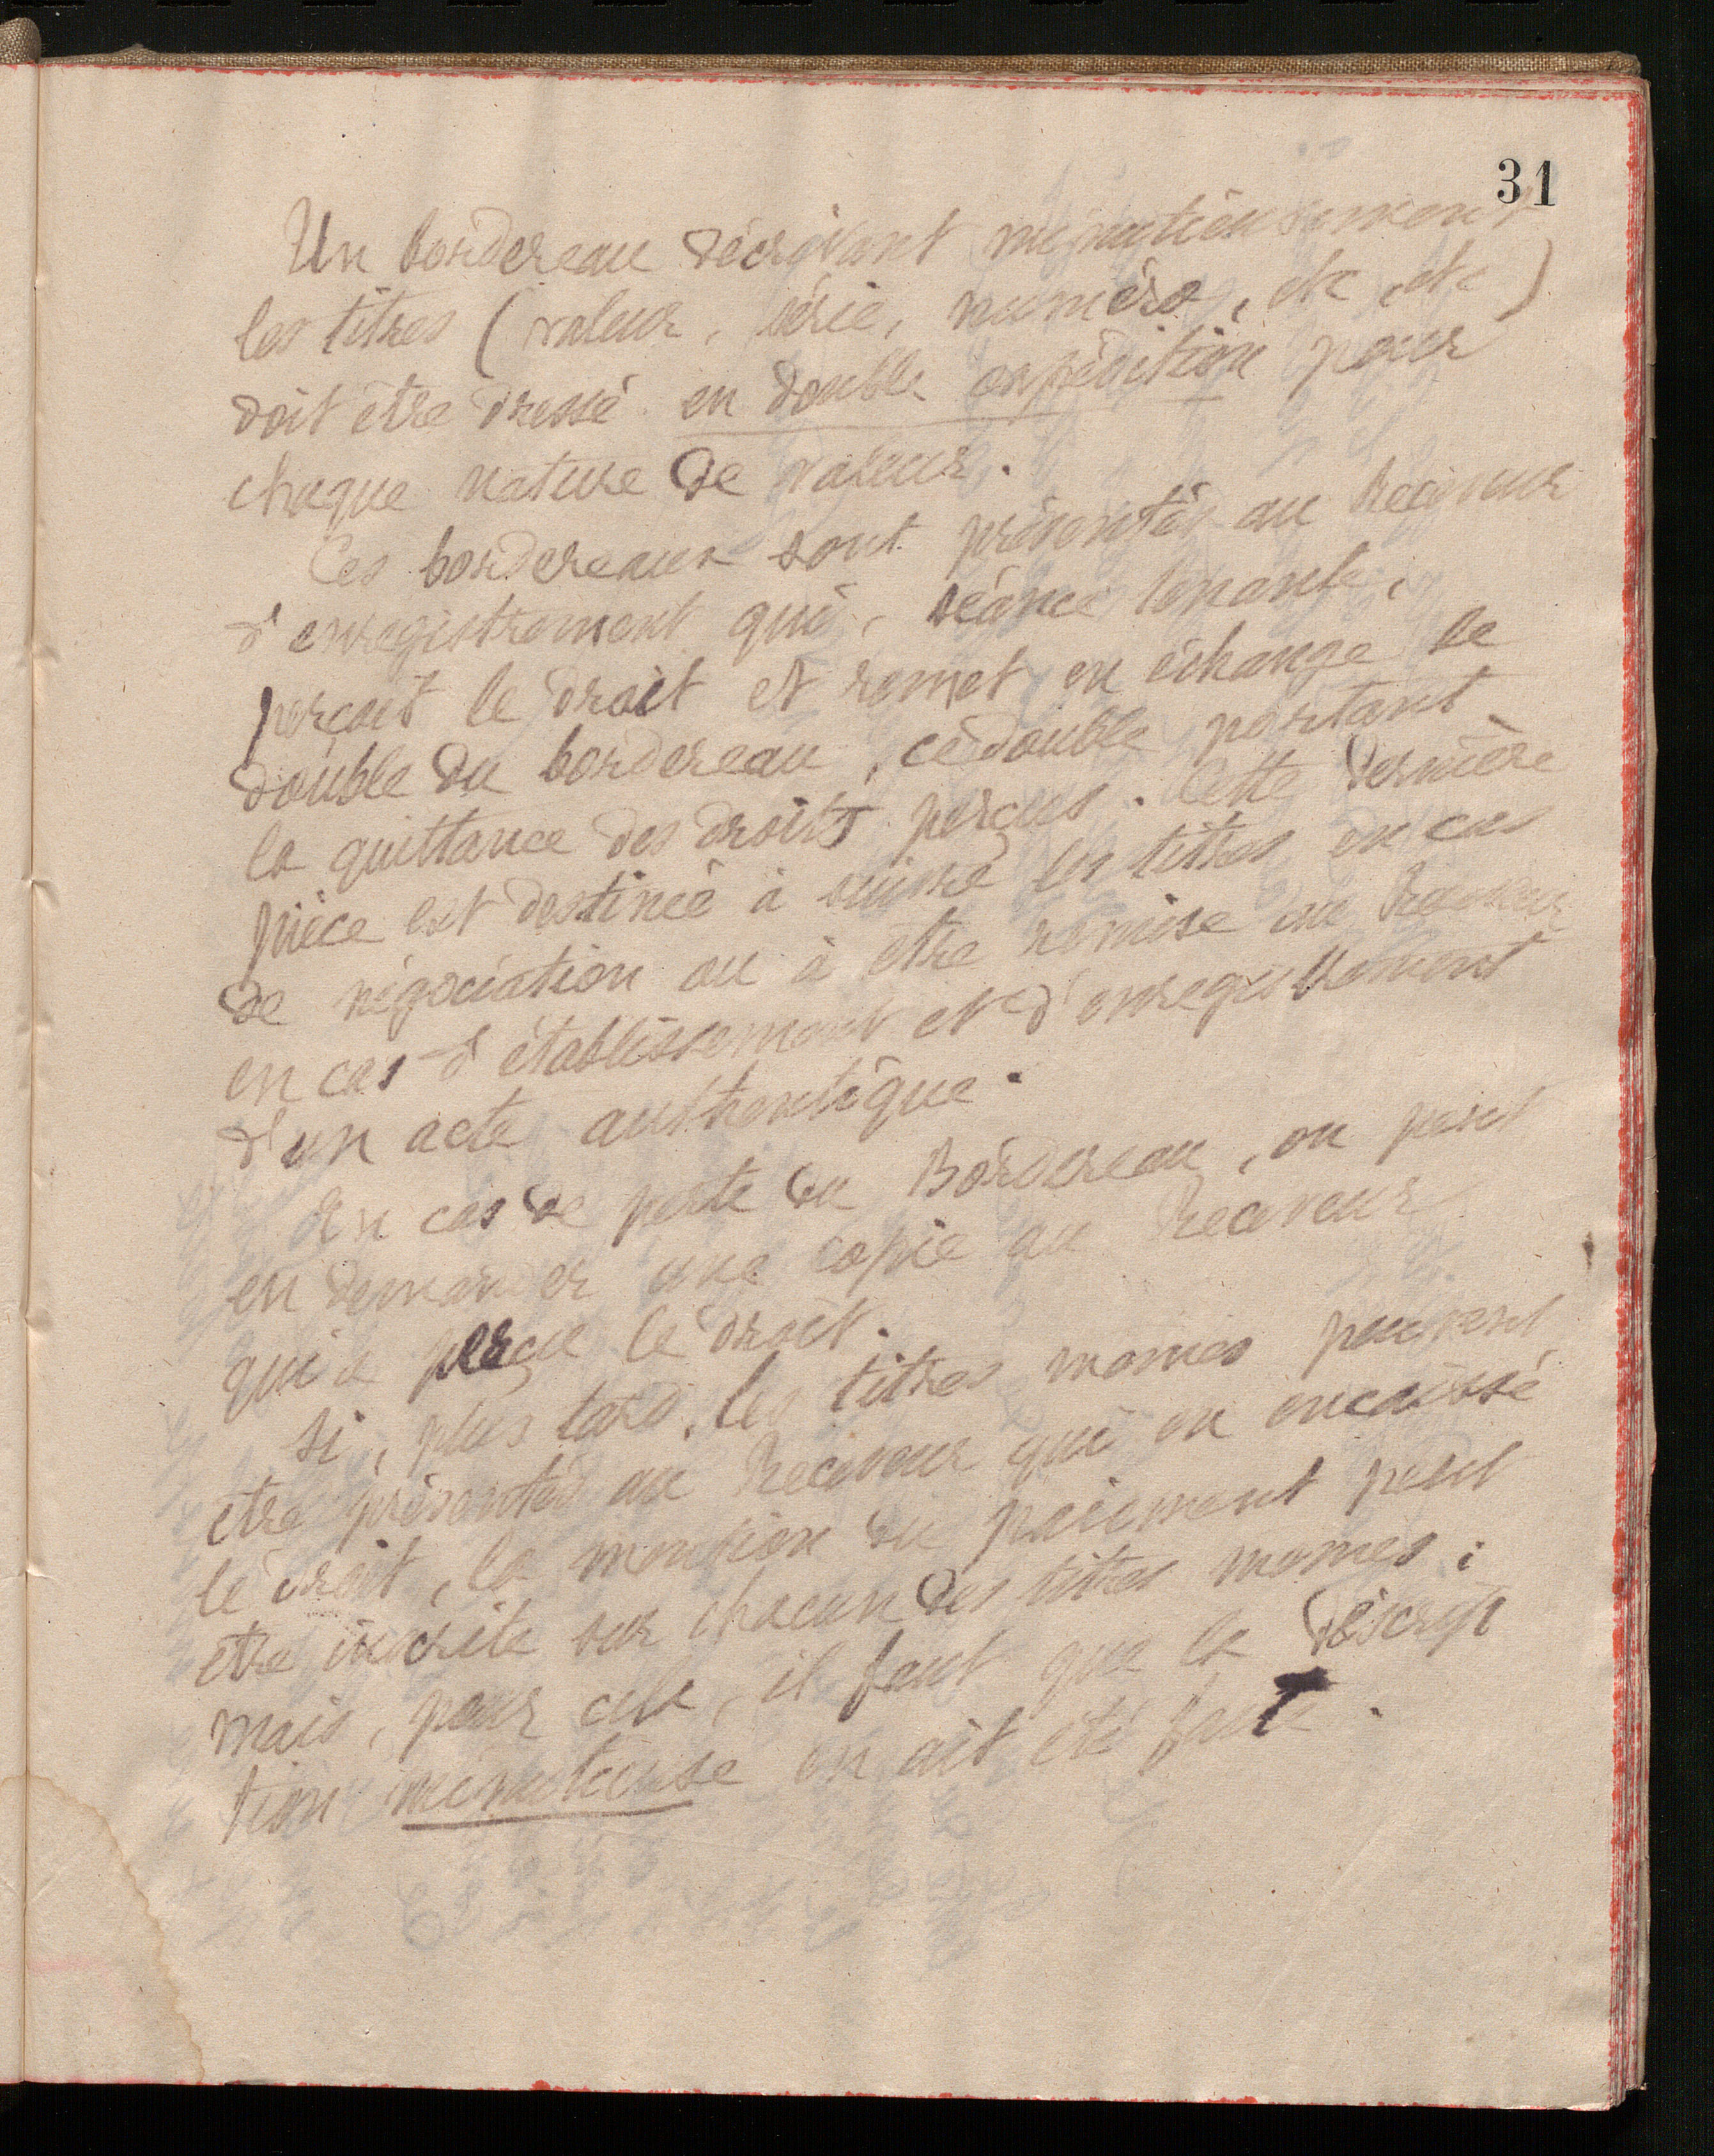 31
Un bordereau décrivant minutieusement
les titres (valeur, série, numéro, etc, etc)
doit être dressé en double expédition pour
chaque nature de valeur.
Ces bordereaux sont présentés au Receveur
d'enregistrement qui, séance tenante,
perçoit le droit et remet en échange le
double du bordereau, ce double portant
la quittance des droits perçus. Cette dernière
pièce est destinée à suivre les titres en cas
de négociation ou à être remise au Receveur
en cas d'établissement et d'enregistrement
d'un acte authentique.
En cas de perte du Bordereau, on peut
en demander une copie au Receveur
qui a perçu le droit.
Si, plus tard, les titres memes peuvent
etre présentés au Receveur qui en encaissé
le droit, la mention du paiement peut
etre inscrite sur chacun des titres memes;
mais, pour cela, il faut que la descrip
tion minutieuse en ait été faite.